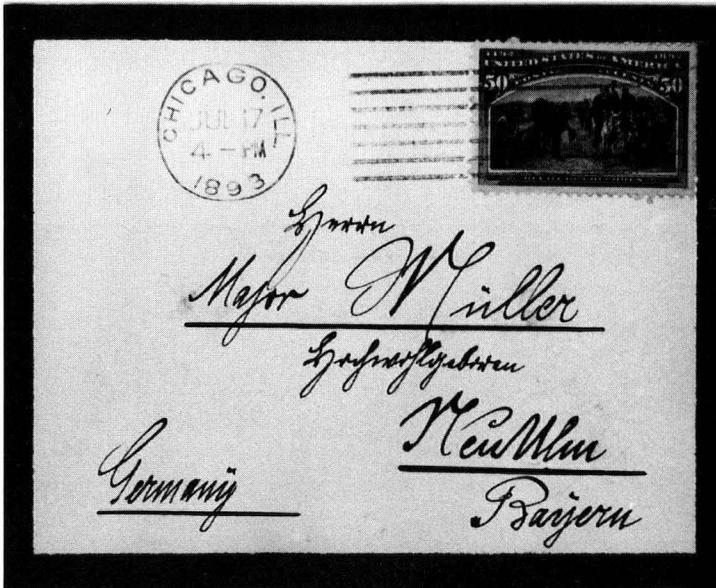 CHICAGO, ILL.
JUL 17
4 - PM
1893
UNITED STATES OF AMERICA
50 50
Herrn
Major Müller
Hochwohlgeboren
Neu Ulm
Germany
Bayern